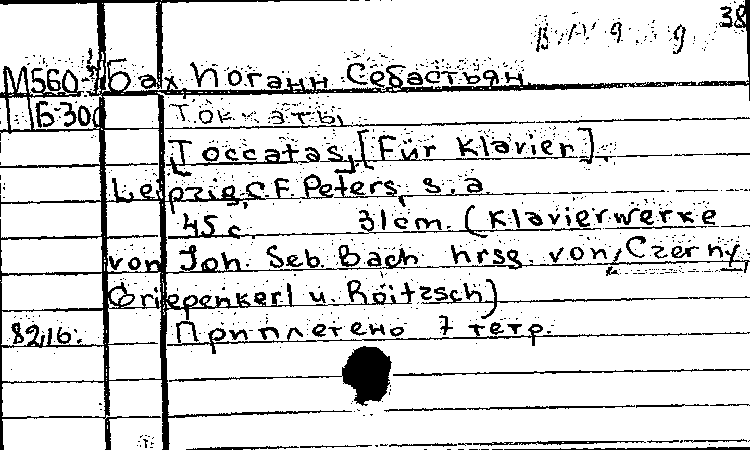 38
М560-
Бах, Иоганн Себастьян.
Б300
Токкаты
[Toccatas], [Für Klavier].
Leipzig, C.F. Peters, s. a
45 с. 31 cm. (Klavierwerke
von Joh. Seb. Bach hrsg. von, Czerny,
Griepenkerl u. Roitzsch)
82,16. Приплетено 7 тетр.